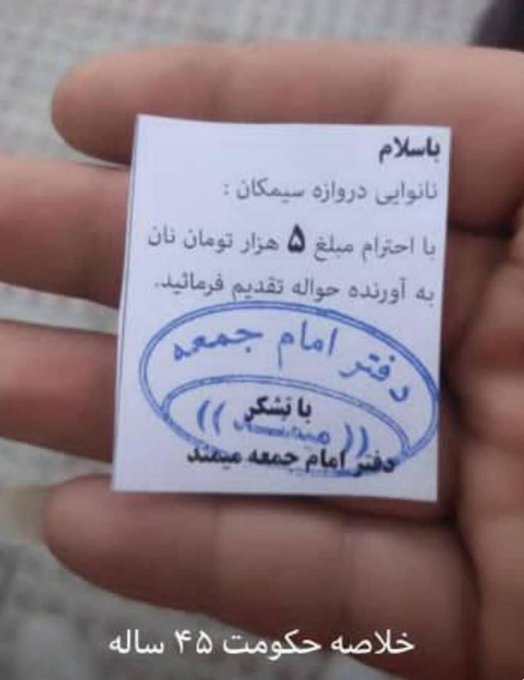 باسلام
نانوایی دروازه سیمکان :
با احترام مبلغ ۵ هزار تومان نان
به آورنده حواله تقدیم فرمائید.
دفتر امام جمعه
با تشکر
دفتر امام جمعه میمند
خلاصه حکومت ۴۵ ساله